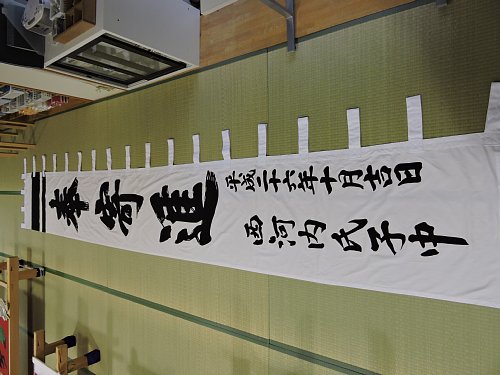 奉寄進
平成二十六年十月吉日
西河内氏子中